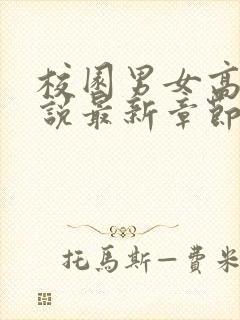 校園男女高
說最新章節
托馬斯—費米